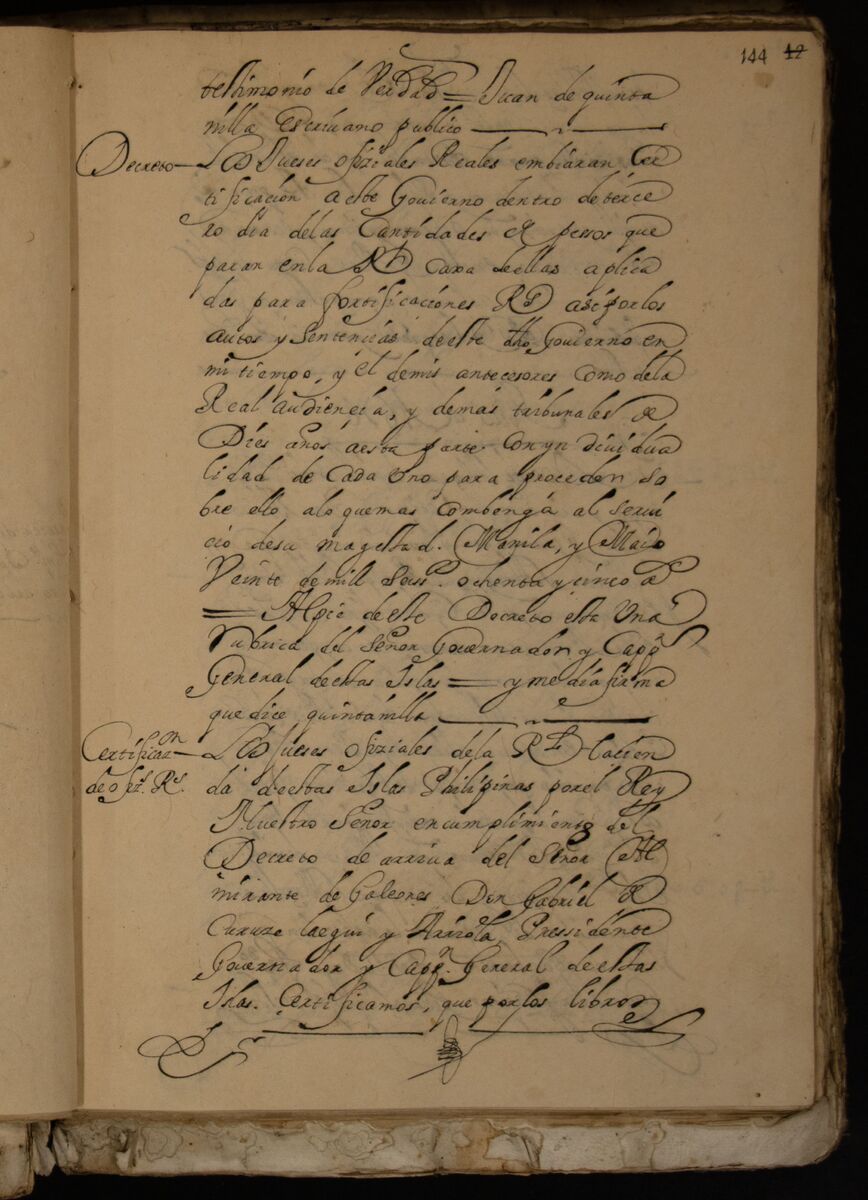 144 42
testimonio de Verdad = Juan de quinta
nilla Escriuano publico
Decreto — Los Jueses ofiziales Reales embiaran Cer
tificacion a este Gouierno dentro de terce
ro dia delas Cantidades de pessos que
paran en la Rl Caxa de ellas aplica
das para fortificaciones Rs asi por los
autos y Sentencias de este dho Gouierno en
mi tiempo, y el demis antecesores como dela
Real audiencia, y demas tribunales de
Dies años aesta parte Con yndiuidua
lidad de Cada Uno para proceder so
bre ello alo quemas Combenga al serui
cio desu magestad. Manila, y Maio
Veinte de mill seiss. ochenta y cinco as
= Al pie de este Decreto esta Una
Rubrica del señor Gouernador y Cappn
General de estas Islas = y media firma
que dice quintanilla
Certificaon de ofizs. Rs. — Los Jueses ofiziales dela Rl Hacien
da de estas Islas Philipinas por el Rey
Nuestro Señor en cumplimiento del
Decreto de arriua del Señor Al
mirante de Galeones Don Gabriel de
Curuzelaegui y Arriola Pressidente
Gouernador y Cappn. General de estas
Islas. Certificamos, que por los libros